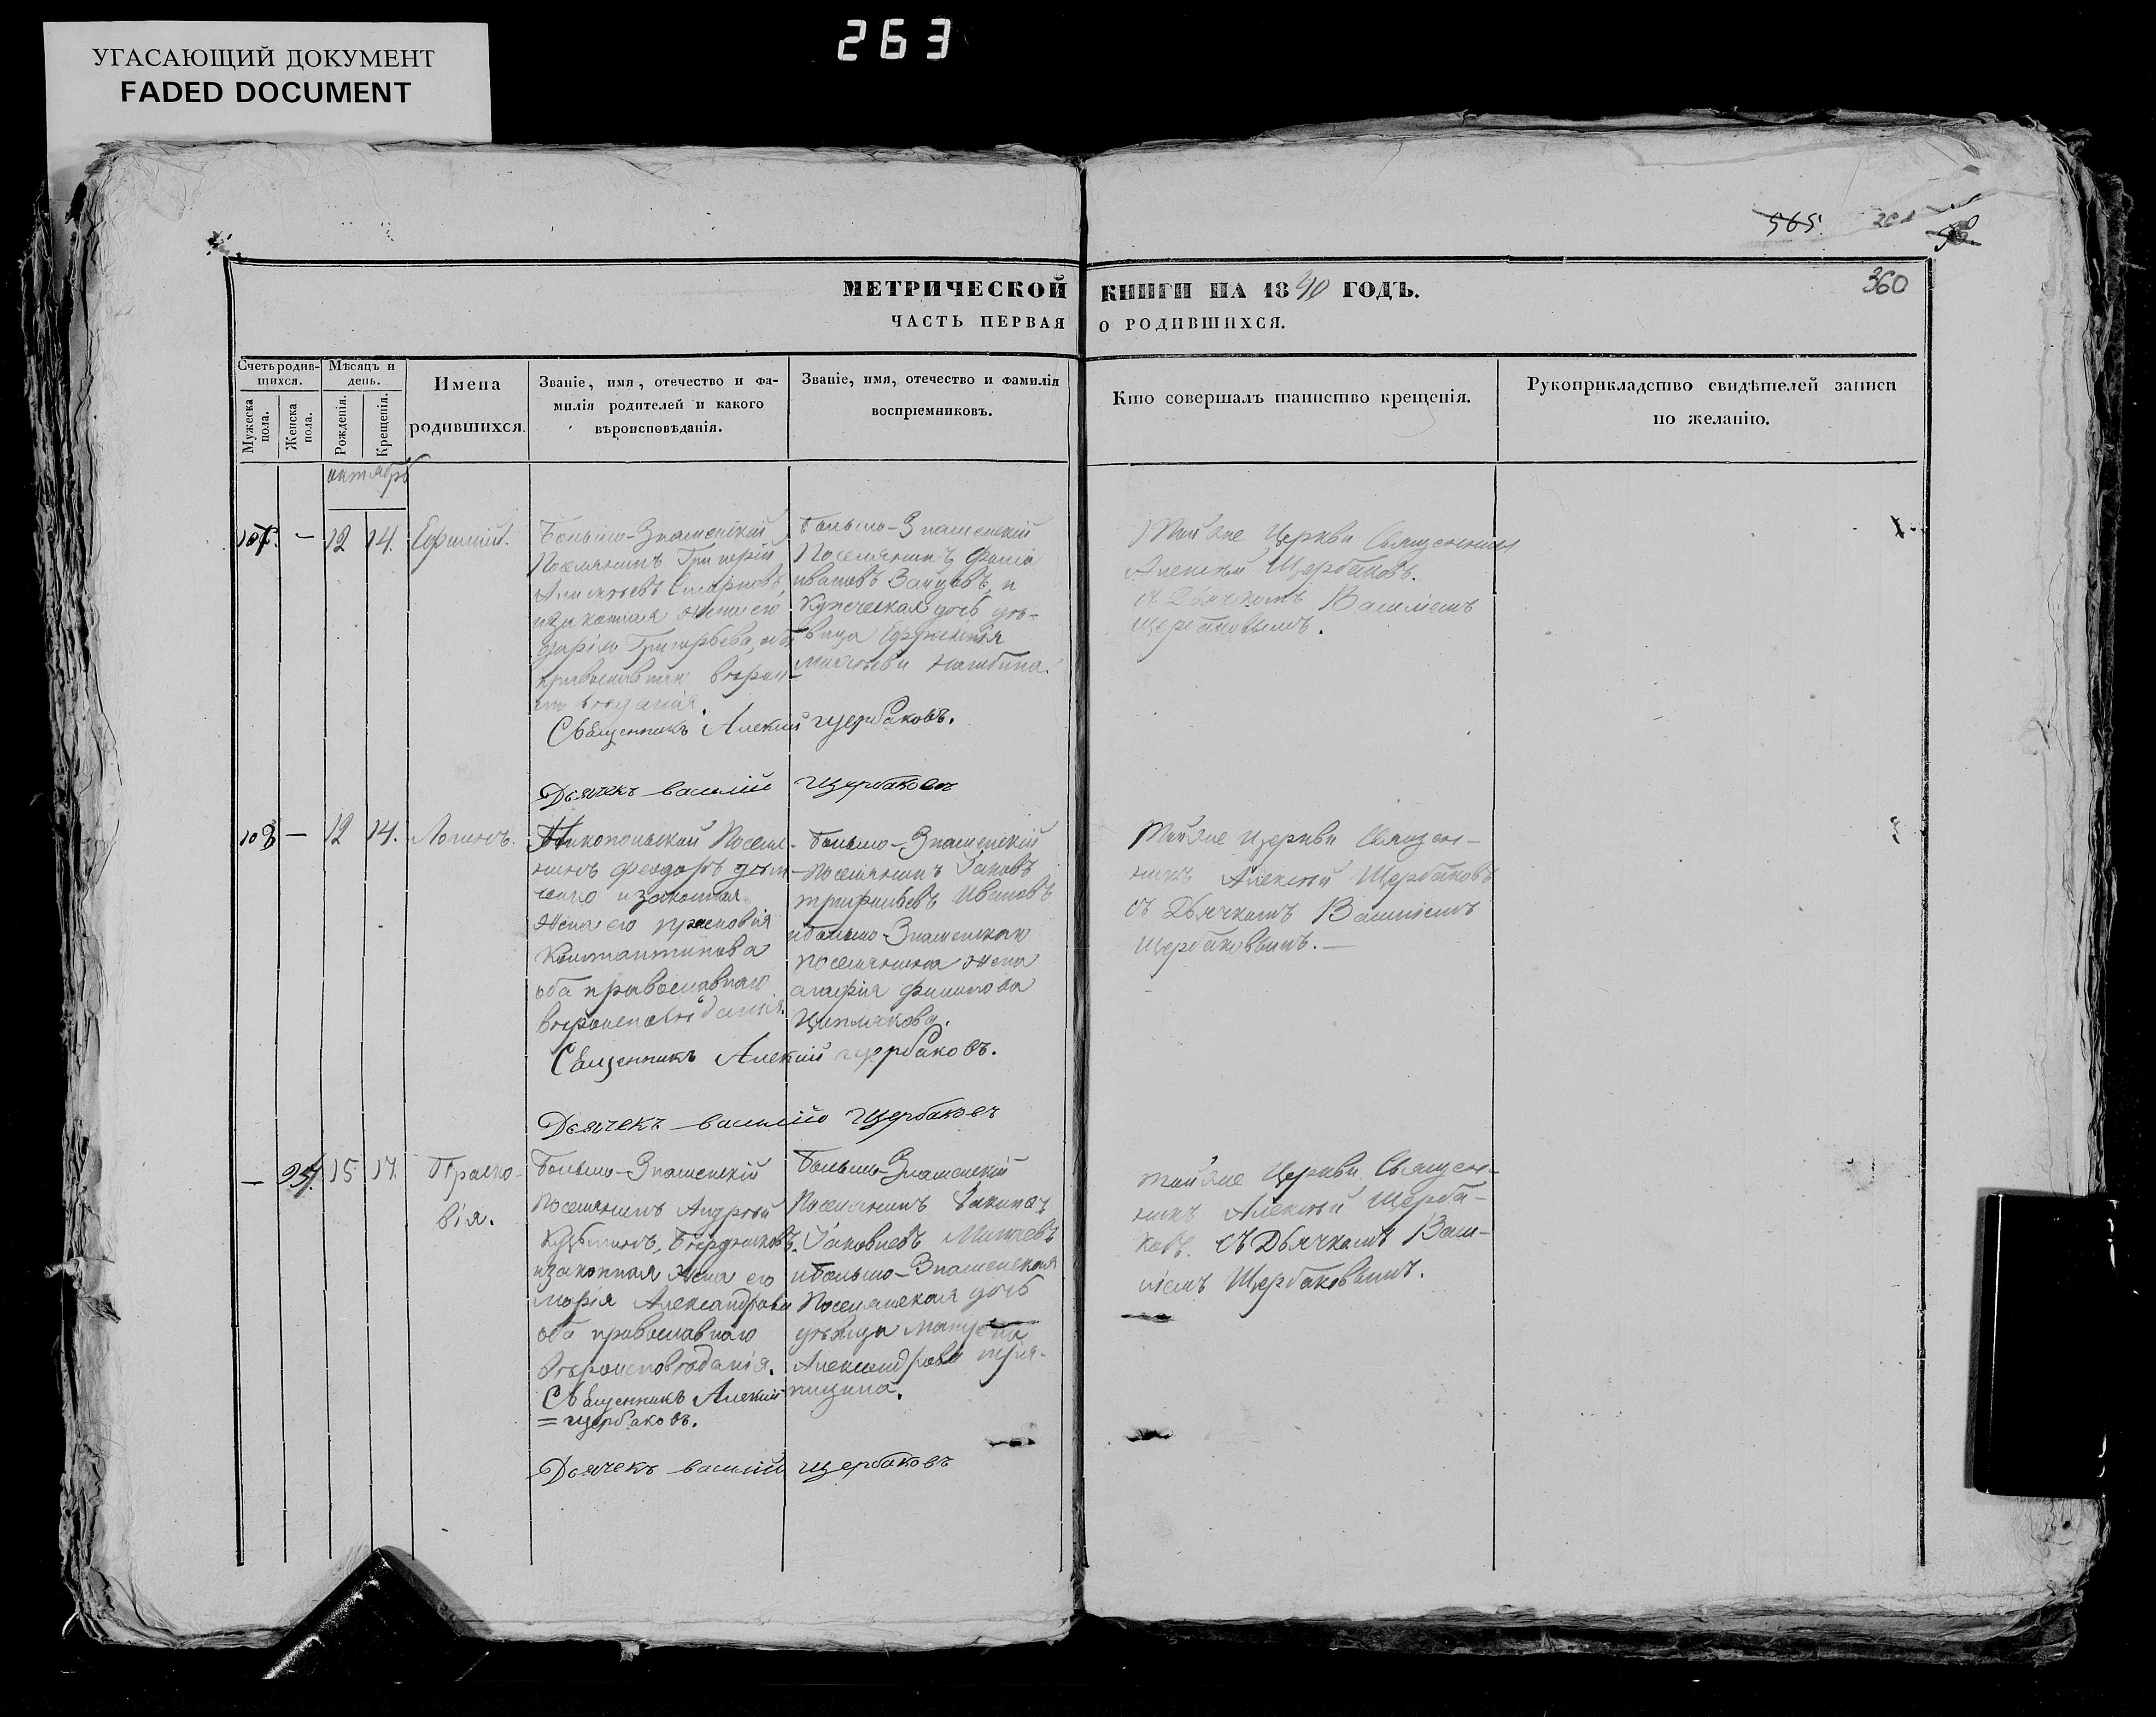 263
УГАСАЮЩИЙ ДОКУМЕНТ
FADED DOCUMENT
565.
360
МЕТРИЧЕСКОЙ КНИГИ НА 1840 ГОДЪ.
ЧАСТЬ ПЕРВАЯ О РОДИВШИХСЯ.
Счетъ родив-
шихся.
Мужеска
пола.
Женска
пола.
Мѣсяцъ и
день.
Рожденія.
Крещенія.
Имена
родившихся.
Званіе, имя, отечество и фа-
милія родителей и какого
вѣроисповѣданія.
Званіе, имя, отечество и фамилія
воспріемниковъ.
Кто совершалъ таинство крещенія.
Рукоприкладство свидѣтелей записи
по желанію.
октябрь
107. — 12 14. Ефимій.
Больше-Знаменскій
Поселянинъ Григорій
законная жена его
Григорьева, оба
православнаго вѣро
Больше-Знаменскій
Поселянинъ
Ивановъ Зайцовъ, и
Купеческая дочь дѣ-
вица Евфиміия
Той же Церкви Священникъ
Алексѣй Щербаковъ.
съ Дьячкомъ Василіемъ
Щербаковымъ.
Священникъ Алексій Щербаковъ.
Дьячекъ Василій Щербаковъ
108 — 12 14. Логинъ.
Никопольскій Поселя-
нинъ Феодоръ
и законная
жена его Прасковія
Константинова
оба православнаго
вѣроисповѣданія.
Больше-Знаменскій
Поселянинъ Іаковъ
Трифильевъ Ивановъ
и Больше-Знаменскаго
поселянина жена
агафія филипова
Той же Церкви Священ-
никъ Алексѣй Щербаковъ
съ Дьячкомъ Василіемъ
Щербаковымъ. —
Священникъ Алексій Щербаковъ.
Дьячекъ Василій Щербаковъ
— 95. 15 17. Праско-
вія.
Больше-Знаменскій
Поселянинъ Андрей
Кузьминъ, Бердниковъ.
и законная жена его
Марія Александрова
оба православнаго
вѣроисповѣданія.
Больше-Знаменскій
Поселянинъ
Іаковлевъ
и Больше-Знаменская
Поселянская дочь
дѣвица
Александрова тря-
пицина.
Той же Церкви Священ-
никъ Алексѣй Щерба-
ковъ. съ Дьячкомъ Васи-
ліемъ Щербаковымъ.
Священникъ Алексій
= Щербаковъ.
Дьячекъ Василій Щербаковъ